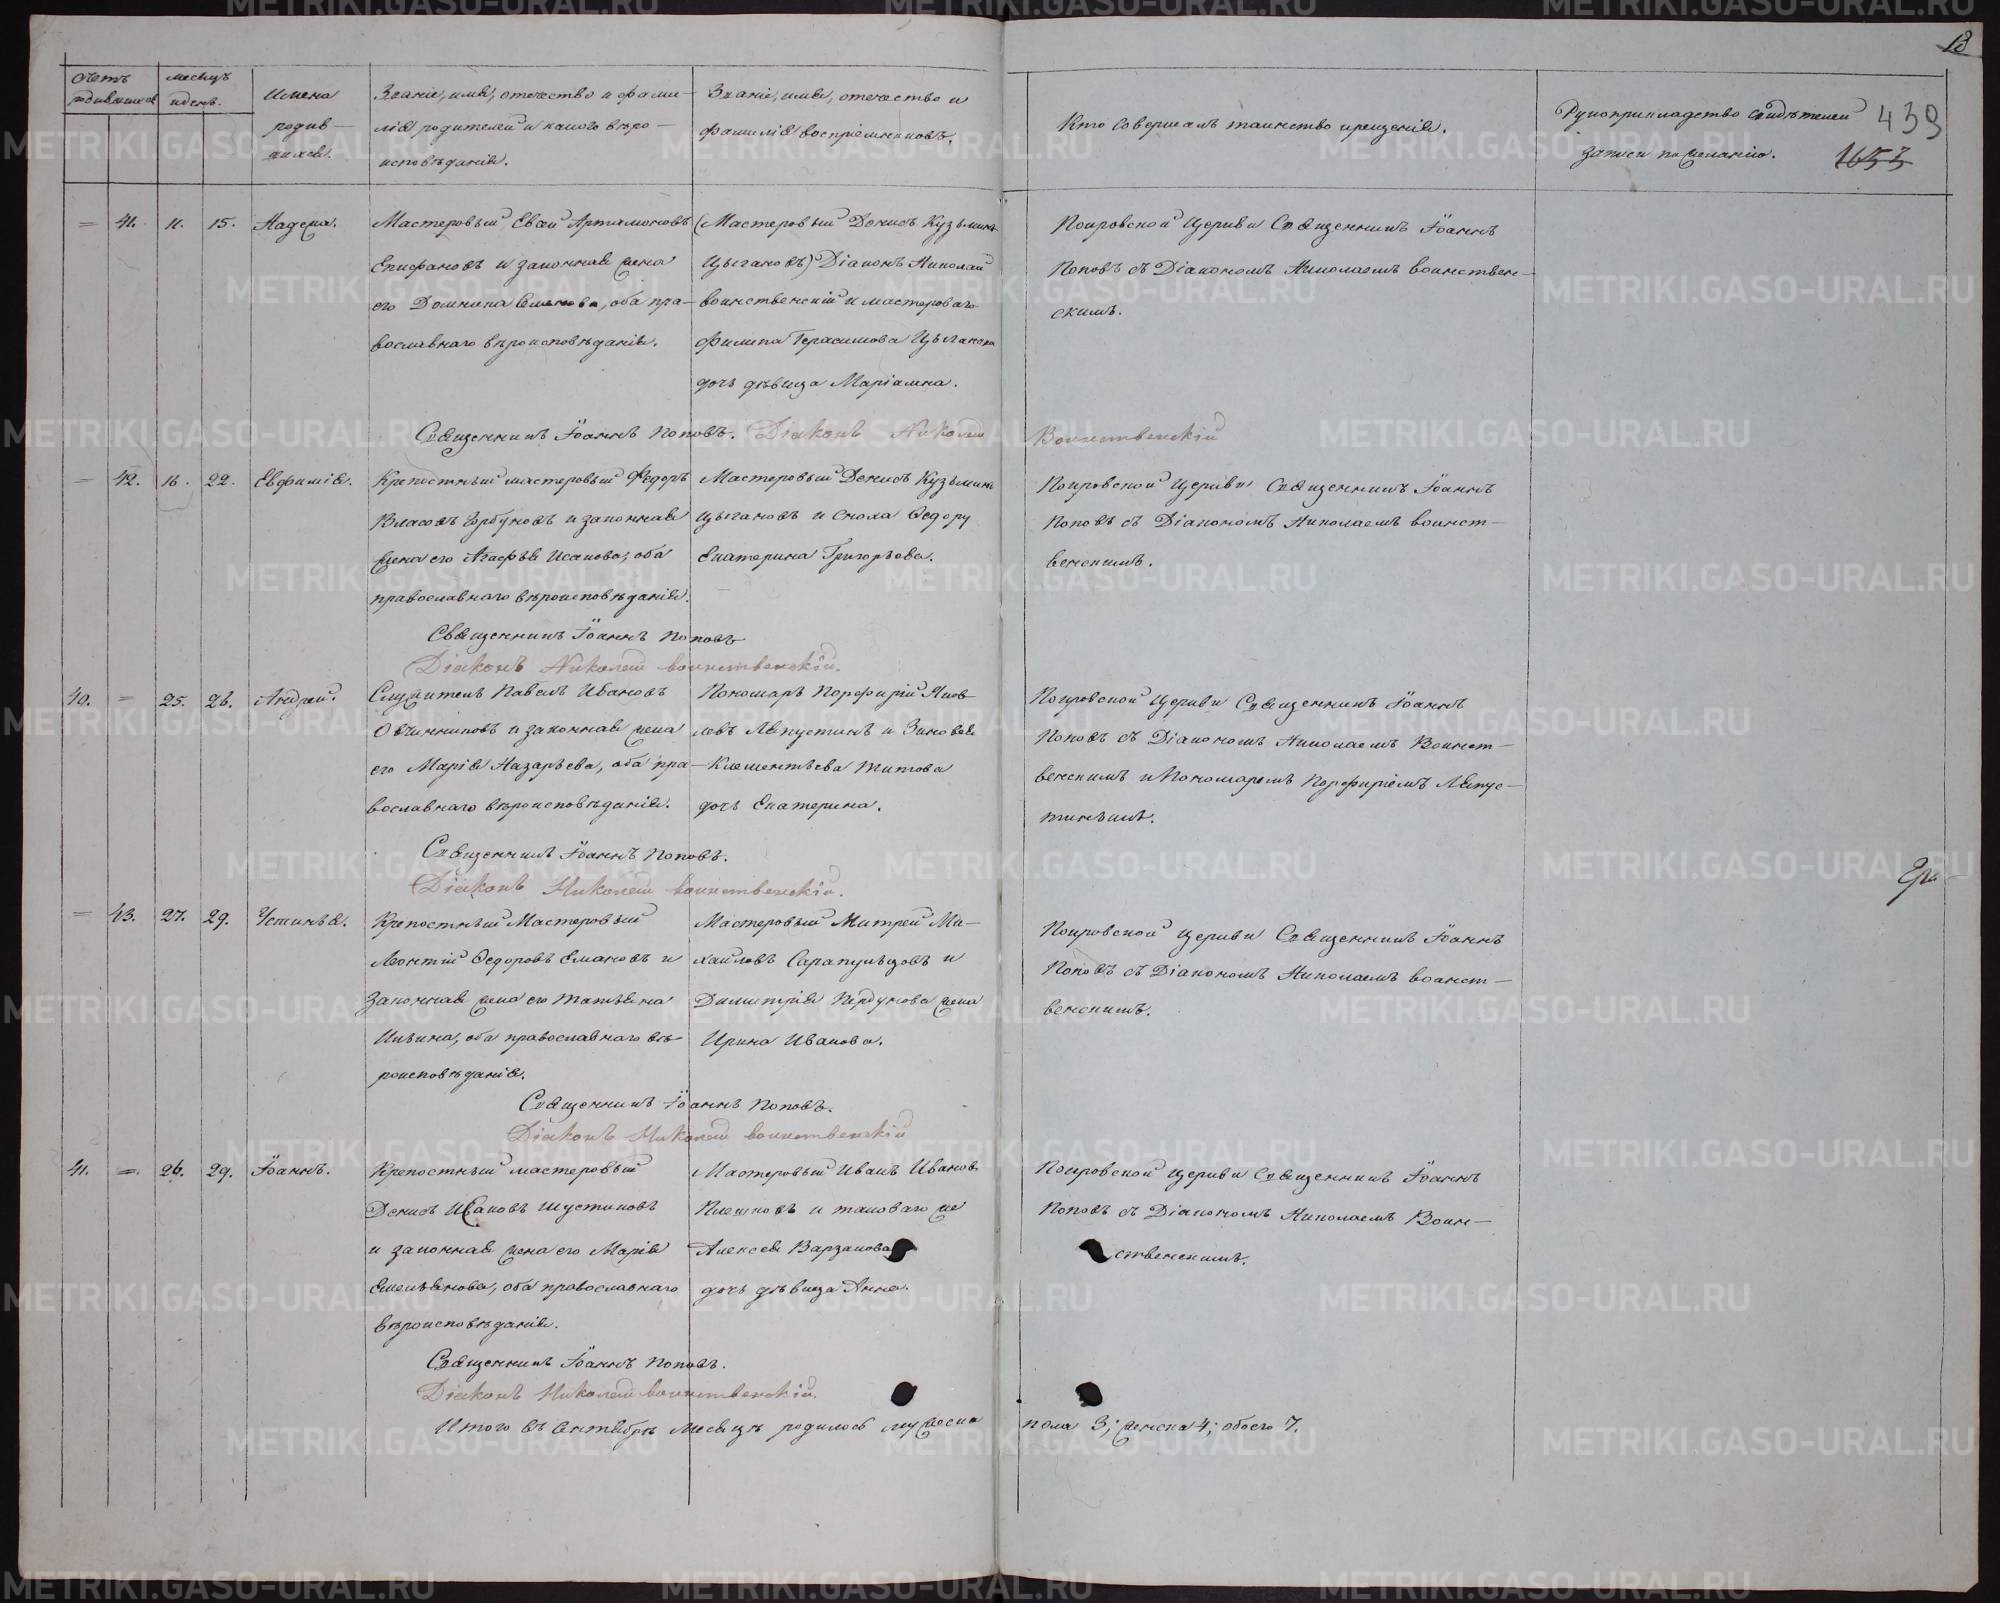 18
439
1653
Счетъ родившихся
Месяцъ и день.
Имена родив-
шихся.
Званіе, имя, отчество и фами-
лія родителей и какого веро-
исповѣданія.
Званіе, имя, отчество и
фамилія воспріемниковъ.
Кто совершалъ таинство крещенія.
Рукоприкладство свидѣтелей
записи по желанію.
= 41. 11. 15. Надежда.
Мастеровый Евсей Артамоновъ
Епифановъ и законная жена
его Домника, оба пра-
вославнаго вѣроисповѣданія.
(Мастеровый Денисъ Кузьминъ
Цыгановъ) Діаконъ Николай
Воинственскій и мастероваго
Филипа Герасимова Цыганова
дочь дѣвица Маріамна.
Покровской Церкви Священникъ Іоаннъ
Поповъ съ Діакономъ Николаемъ Воинствен-
скимъ.
Священникъ Іоаннъ Поповъ. Діаконъ Николай Воинственскій
= 42. 16. 22. Евфимія.
Крепостный мастеровый Федоръ
Власовъ Горбуновъ и законная
жена его Агафья Исакова, оба
православнаго вѣроисповѣданія.
Мастеровый Денисъ Кузьминъ
Цыгановъ и Федору
Екатерина Григорьева.
Покровской Церкви Священникъ Іоаннъ
Поповъ съ Діакономъ Николаемъ Воинст-
венскимъ.
Священникъ Іоаннъ Поповъ
Діаконъ Николай Воинственскій.
40. = 25. 26. Андрей.
Служитель Павелъ Ивановъ
Овчинниковъ и законная жена
его Марія Назарьева, оба пра-
вославнаго вѣроисповѣданія.
Пономарь Порфирій Яков-
левъ Ляпустинъ и Зиновья
Клементьева Титова
дочь Екатерина.
Покровской Церкви Священникъ Іоаннъ
Поповъ съ Діакономъ Николаемъ Воинст-
венскимъ и Пономаремъ Порфиріемъ Ляпус-
тинымъ.
Священникъ Іоаннъ Поповъ.
Діаконъ Николай Воинственскій.
= 43. 27. 29. Устинья.
Крепостный Мастеровый
Леонтій Федоровъ Емановъ и
Законная жена его Татьяна
Ильина, оба православнаго вѣ-
роисповѣданія.
Мастеровый Митрей Ми-
хайловъ Сарапульцовъ и
Димитрія жена
Ирина Иванова.
Покровской Церкви Священникъ Іоаннъ
Поповъ съ Діакономъ Николаемъ Воинст-
венскимъ.
Священникъ Іоаннъ Поповъ.
Діаконъ Николай Воинственскій
41. = 26. 29. Іоаннъ.
Крепостный мастеровый
Денисъ Ивановъ Шустиковъ
и законная жена его Марія
Емельянова, оба православнаго
вѣроисповѣданія.
Мастеровый Иванъ Ивановъ
Плешковъ и таковаго же
Алексея Варзакова
дочь дѣвица Анна.
Покровской Церкви Священникъ Іоаннъ
Поповъ съ Діакономъ Николаемъ Воин-
ственскимъ.
Священникъ Іоаннъ Поповъ.
Діаконъ Николай Воинственскій.
Итого въ Сентябрѣ месяцѣ родилось мужеска пола 3; женска 4; обоего 7.
METRIKI.GASO-URAL.RU